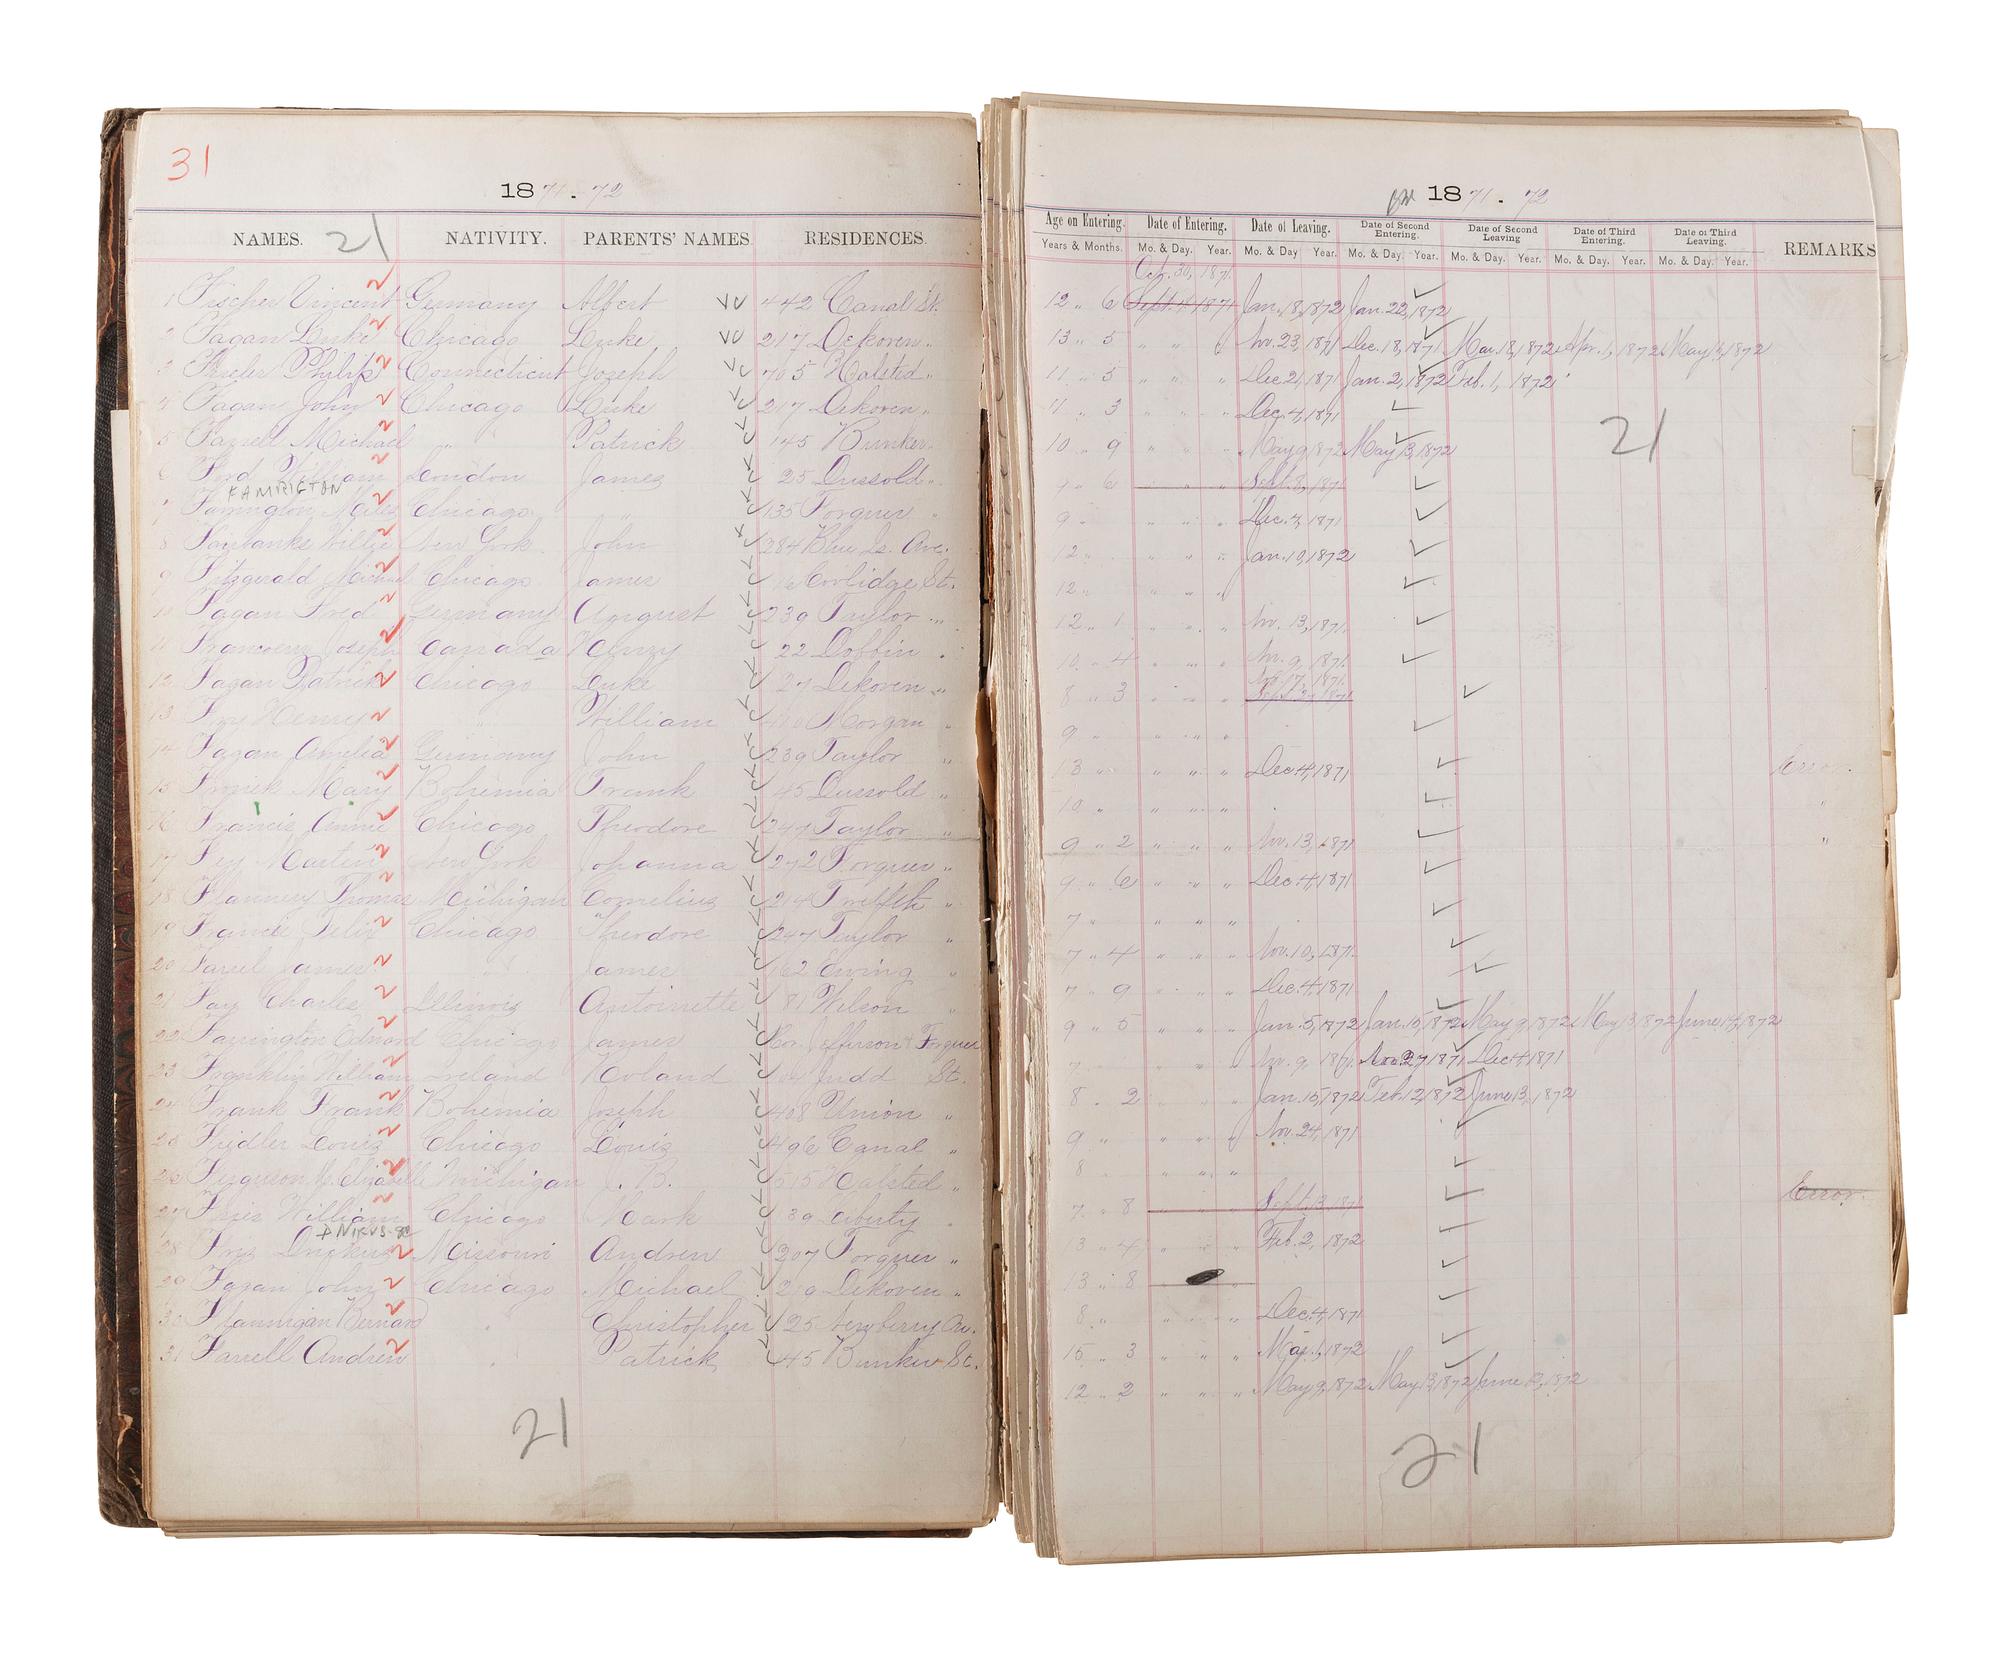 31
1871.72
NAMES. 21 NATIVITY. PARENTS' NAMES. RESIDENCES.
1 Fischer Vincent Germany Albert 442 Canal St.
2 Fagan Luke Chicago Luke 217 Dekoven "
3 Philip Connecticut Joseph 705 Halsted "
4 Fagan John Chicago Luke 217 Dekoven "
5 Farrell Michael " " Patrick 145 Bunker "
6 Ford William London James 25 Dussold "
FARRINGTON
7 Farrington Miles Chicago " " 135 Forquer "
8 Fairbanks Willie New York John 284 Blue Is. Ave.
9 Fitzgerald Michael Chicago James 16 Coolidge St.
10 Fagan Fred Germany August 239 Taylor "
11 Francoeur Joseph Canada Henry 22 Dobbin "
12 Fagan Patrick Chicago Luke 27 Dekoven "
13 Henry " William Morgan "
14 Fagan Amelia Germany John 239 Taylor "
15 Mary Bohemia Frank 45 Dussold "
16 Francis Annie Chicago Theodore 247 Taylor "
17 Fey Martin New York Johanna 272 Forquer "
18 Flannery Thomas Michigan Cornelius 214 Twelfth "
19 Francis Felix Chicago Theodore 247 Taylor "
20 James " James 162 Ewing "
21 Fay Charles Illinois Antoinette 81 Wilson "
22 Farrington Edward Chicago James Cor. Jefferson & Forquer
23 Franklin William Ireland Roland Judd St.
24 Frank Frank Bohemia Joseph 408 Union "
25 Fiedler Louis Chicago Louis 496 Canal "
26 Ferguson M. Elizabeth Michigan J. B. 515 Halsted "
27 William Chicago Mark 39 Liberty "
28 Missouri Andrew 207 Forquer "
29 Fagan John Chicago Michael 219 Dekoven "
30 Flannigan Bernard " Christopher 125 Newberry Av.
31 Farrell Andrew " Patrick 145 Bunker St.
21
1871.72
Age on Entering. Date of Entering. Date of Leaving. Date of Second Entering. Date of Second Leaving Date of Third Entering. Date of Third Leaving. REMARKS
Years & Months. Mo. & Day. Year. Mo. & Day Year. Mo. & Day. Year. Mo. & Day. Year. Mo. & Day. Year. Mo. & Day. Year.
Oct. 30, 1871.
12 " 6 Sept. 4, 1871 Jan. 18, 1872 Jan. 22, 1872
13 " 5 " " " Nov. 23, 1871 Dec. 18, 1871 Mar. 18, 1872 Apr. 1, 1872 May 13, 1872
11 " 5 " " " Dec. 21, 1871 Jan. 2, 1872 Feb. 1, 1872
11 " 3 " " " Dec. 4, 1871
21
10 " 9 " " " May 9, 1872 May 13, 1872
7 " 6 " " Sept. 8, 1871
9 " " " " Dec. 4, 1871
12 " " " " Jan. 10, 1872
12 " " " "
12 " 1 " " " Nov. 13, 1871.
10 " 4 " " " Nov. 9, 1871.
Nov. 17, 1871.
8 " 3 " " " Sept. 27, 1871
9 " " " "
13 " " " " Dec. 4, 1871 Error.
10 " " " " "
9 " 2 " " " Nov. 13, 1871 "
9 " 6 " " " Dec. 4, 1871
7 " " " "
7 " 4 " " " Nov. 10, 1871.
7 " 9 " " " Dec. 4, 1871
9 " 5 " " " Jan. 5, 1872 Jan. 15, 1872 May 9, 1872 May 13, 1872 June 14, 1872
7 " " " " Nov. 9, 1871. Nov. 27, 1871 Dec. 4, 1871
8 " 2 " " " Jan. 15, 1872 Feb. 12, 1872 June 13, 1872
9 " " " " Nov. 24, 1871
8 " " " "
7 " 8 " " " Sept. 13, 1871 Error.
13 " 4 " " " Feb. 2, 1872
13 " 8 "
8 " " " " Dec. 4, 1871
15 " 3 " " " Mar. 1, 1872
12 " 2 " " " May 9, 1872 May 13, 1872 June 12, 1872
21